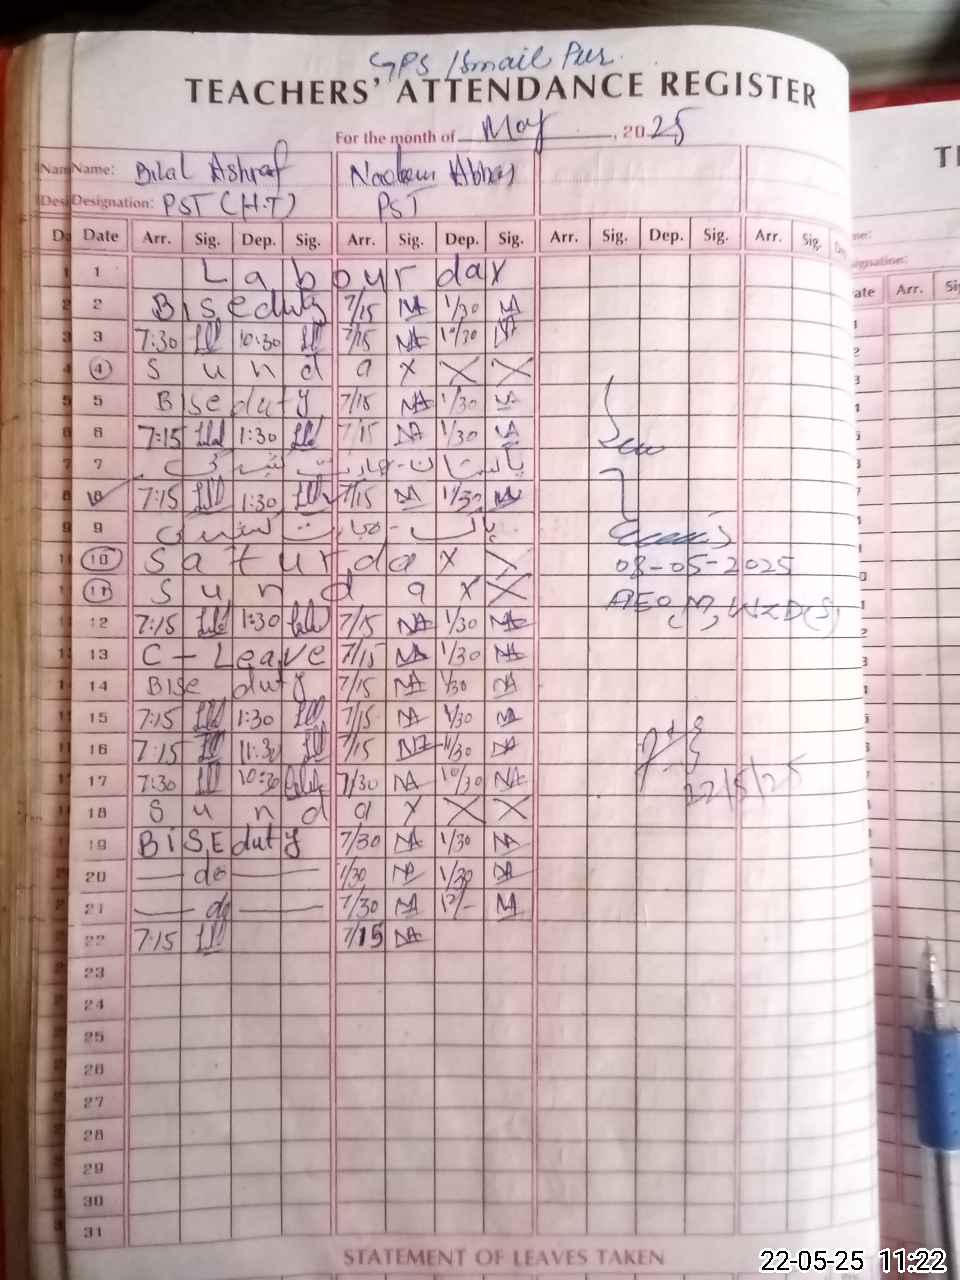 GPS Ismail Pur.
TEACHERS' ATTENDANCE REGISTER
For the month of May, 2025
Name: Bilal Ashraf Nadeem Abbas
Designation: PST (H.T) PST
Date Arr. Sig. Dep. Sig. Arr. Sig. Dep. Sig. Arr. Sig. Dep. Sig. Arr. Sig.
1 Labour day
2 Bise duty 7/15 NA 1/30 NA
3 7:30 10:30 7/15 NA 10/30 NA
4 Sunda x X X
5 Bise duty 7/15 NA 1/30 NA
6 7:15 1:30 7/15 NA 1/30 NA
7 بھارت
8 7:15 1:30 7/15 NA 1/30 NA
9 پاک بھارت
10 Saturda x
08-05-2025
11 Sunda x X
12 7:15 1:30 7/15 NA 1/30 NA
13 C - Leave 7/15 NA 1/30 NA
14 Bise duty 7/15 NA 1/30 NA
15 7:15 1:30 7/15 NA 1/30 NA
16 7:15 11:30 7/15 NA 11/30 NA
17 7:30 10:30 7/30 NA 10/30 NA
22/5/25
18 Sunda x X X
19 BISE duty 7/30 NA 1/30 NA
20 — do — 1/30 NA 1/30 NA
21 — do — 7/30 NA 12/- NA
22 7:15 7/15 NA
23
24
25
26
27
28
29
30
31
STATEMENT OF LEAVES TAKEN
22-05-25 11:22